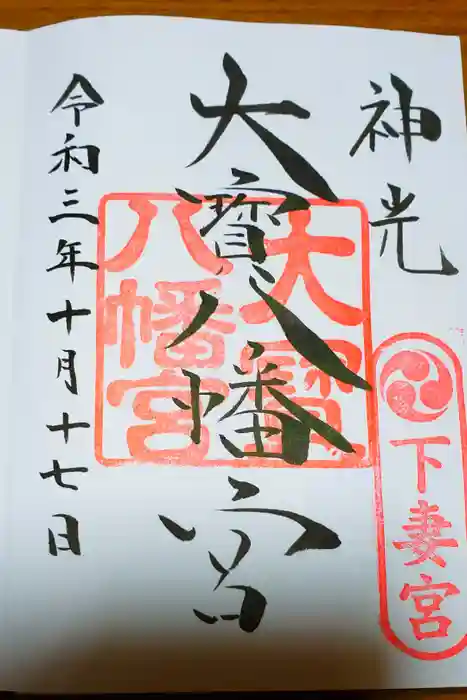 神光
下妻宮
大寶八幡宮
大寳八幡宮
令和三年十月十七日